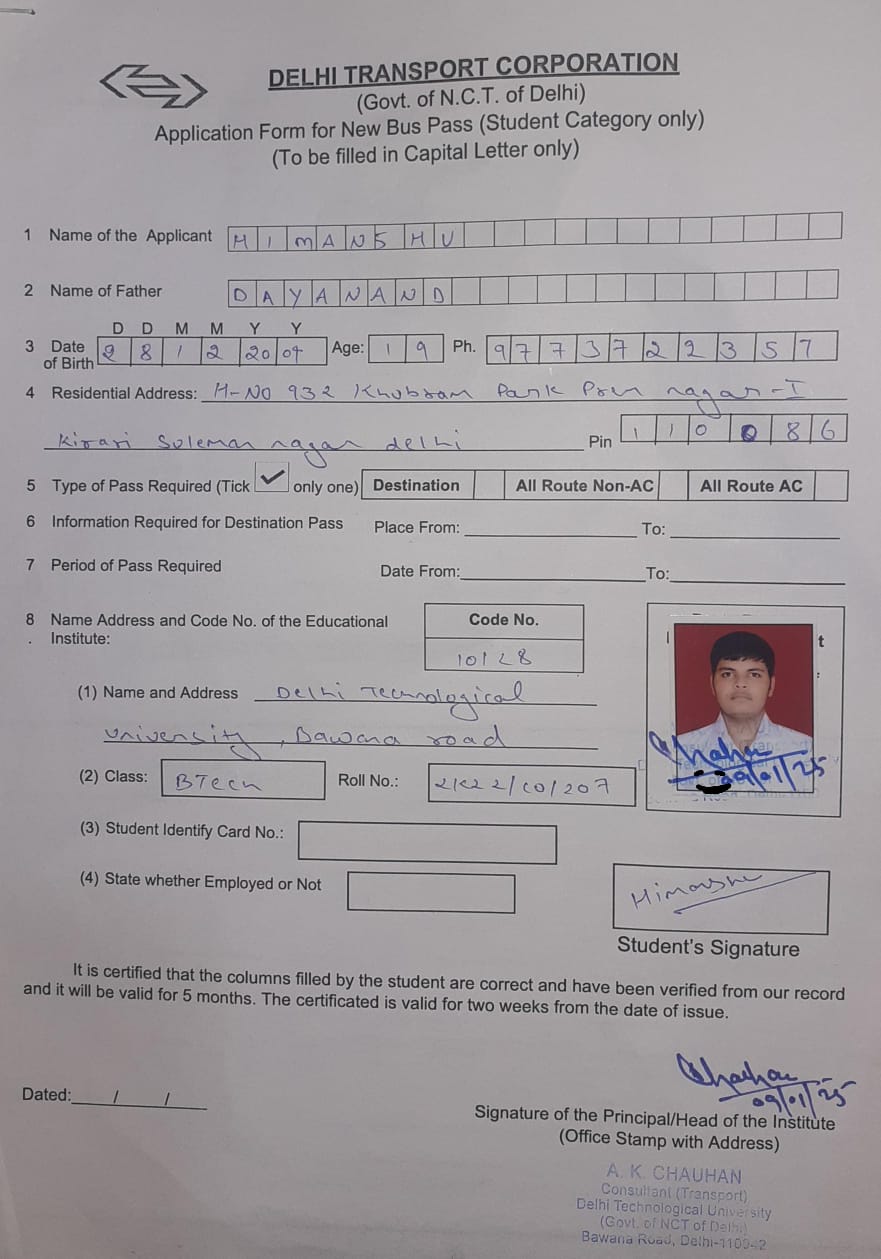 DELHI TRANSPORT CORPORATION
(Govt. of N.C.T. of Delhi)
Application Form for New Bus Pass (Student Category only)
(To be filled in Capital Letter only)
1 Name of the Applicant HIMANSHU
2 Name of Father DAYANAND
D D M M Y Y
3 Date of Birth 28 12 2004 Age: 19 Ph. 9773722357
4 Residential Address: H-NO 932 Khubram Park Prem nagar-I
Kirari Suleman nagar delhi Pin 110086
5 Type of Pass Required (Tick ✓ only one) Destination All Route Non-AC All Route AC
6 Information Required for Destination Pass Place From: To:
7 Period of Pass Required Date From: To:
8 Name Address and Code No. of the Educational Code No.
. Institute: 10128
(1) Name and Address Delhi Technological
University, Bawana road
(2) Class: BTech Roll No.: 2K22/CO/207
09/01/25
(3) Student Identify Card No.:
(4) State whether Employed or Not
Himanshu
Student's Signature
It is certified that the columns filled by the student are correct and have been verified from our record
and it will be valid for 5 months. The certificated is valid for two weeks from the date of issue.
09/01/25
Dated: / /
Signature of the Principal/Head of the Institute
(Office Stamp with Address)
A. K. CHAUHAN
Consultant (Transport)
Delhi Technological University
(Govt. of NCT of Delhi)
Bawana Road, Delhi-110042